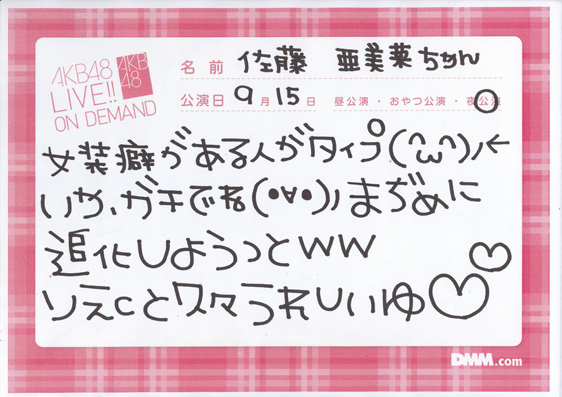 AKB48
LIVE!!
ON DEMAND
AKB
48
名前 佐藤 亜美菜ちゃん
公演日 9月15日 昼公演・おやつ公演・夜公演
女装癖がある人がタイプ(^ω^)ノ←
いや、ガチでね(•∀•)ノまぢめに
追化しようっとww
りえcとワタうれしいゆ♡♡
DMM.com